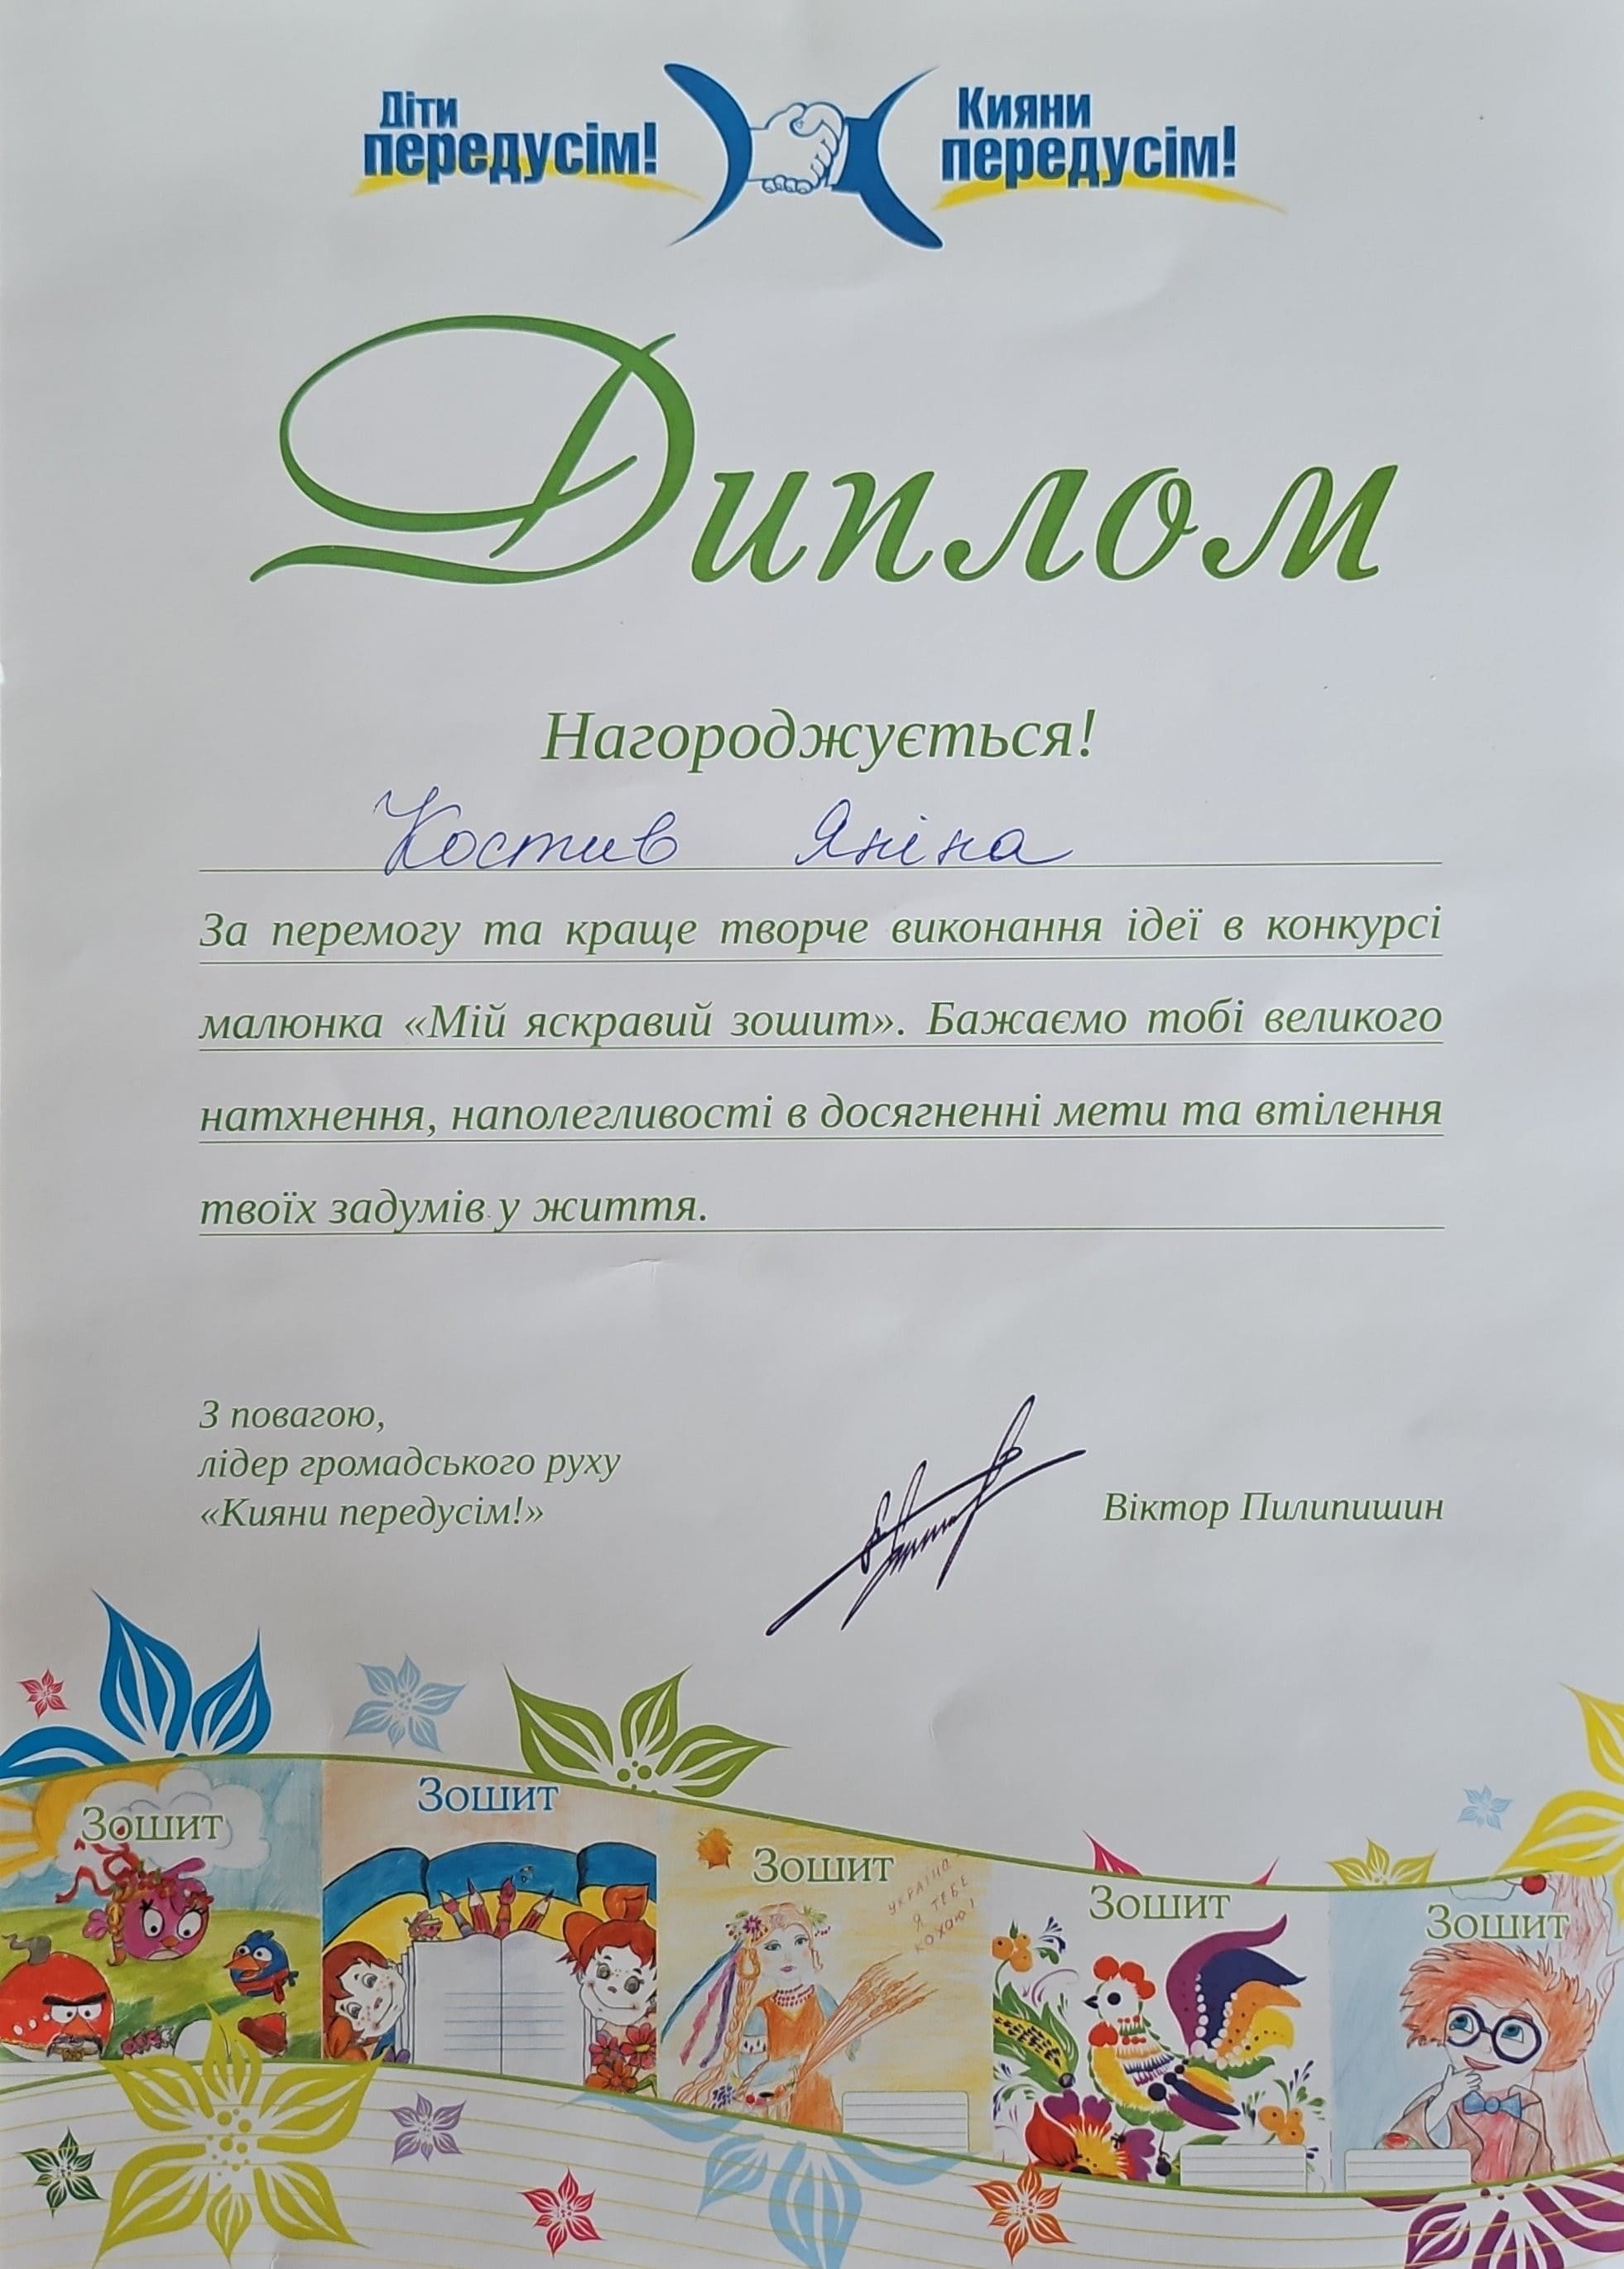 Діти
передусім!
Кияни
передусім!
Диплом
Нагороджується!
Костив Яніна
За перемогу та краще творче виконання ідеї в конкурсі
малюнка «Мій яскравий зошит». Бажаємо тобі великого
натхнення, наполегливості в досягненні мети та втілення
твоїх задумів у життя.
З повагою,
лідер громадського руху
«Кияни передусім!»
Віктор Пилипишин
Зошит
Зошит
Зошит
УКРАЇНА
Я ТЕБЕ
КОХАЮ!
Зошит
Зошит